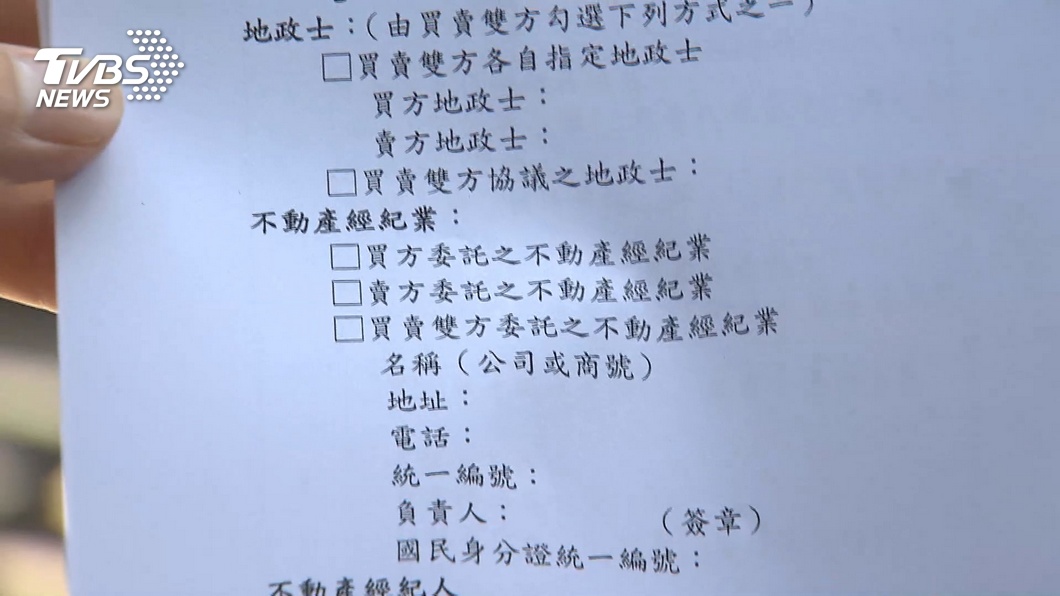 TVBS
NEWS
地政士：(由買賣雙方勾選下列方式之一)
□買賣雙方各自指定地政士
買方地政士：
賣方地政士：
□買賣雙方協議之地政士：
不動產經紀業：
□買方委託之不動產經紀業
□賣方委託之不動產經紀業
□買賣雙方委託之不動產經紀業
名稱（公司或商號）
地址：
電話：
統一編號：
負責人： （簽章）
國民身分證統一編號：
不動產經紀人